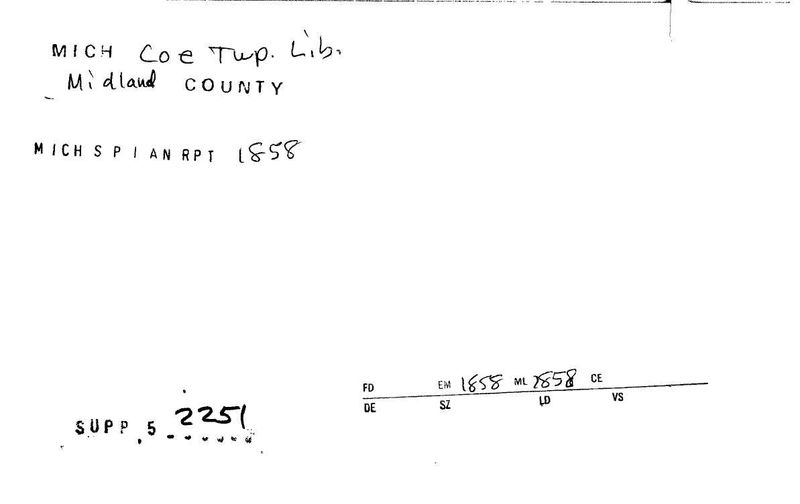 MICH Coe Twp. Lib.
Midland COUNTY
MICH S P I AN RPT 1858
FD EM 1858 ML 1858 CE
DE SZ LD VS
SUPP. 5 2251